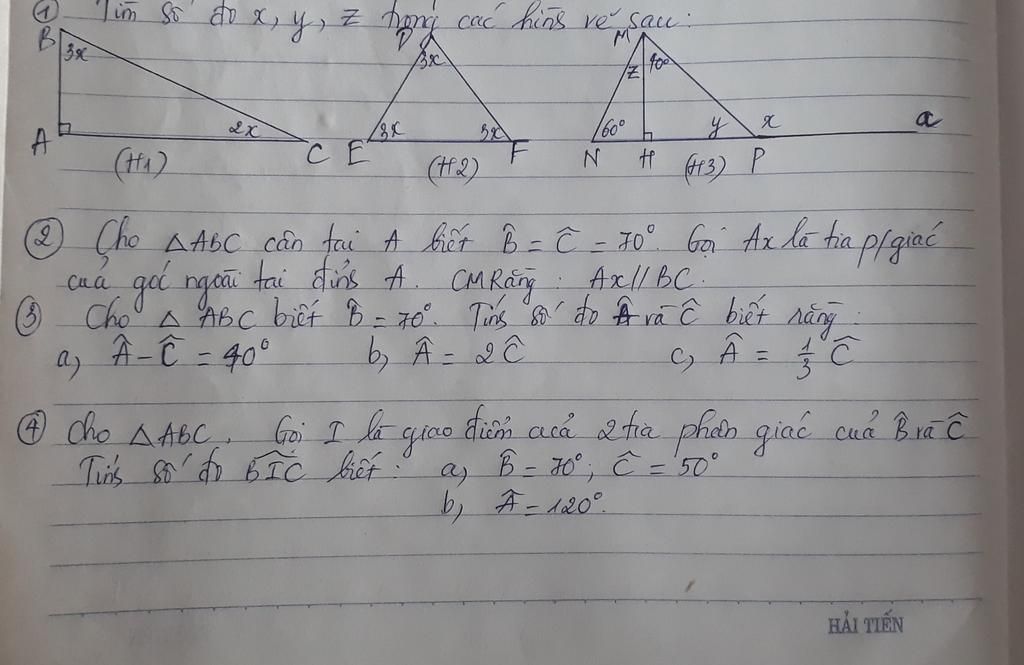 ① Tìm số đo x, y, z trong các hình vẽ sau:
B 3x A 2x C (H1)
D 3x E 3x 3x F (H2)
M z 40° 60° N H y P x a (H3)
② Cho △ABC cân tại A biết B̂ = Ĉ = 70°. Gọi Ax là tia p/giác
của góc ngoài tại đỉnh A. CMRằng: Ax // BC.
③ Cho △ ABC biết B̂ = 70°. Tính số đo Â và Ĉ biết rằng:
a, Â - Ĉ = 40° b, Â = 2Ĉ c, Â = 1/3 Ĉ
④ Cho △ABC. Gọi I là giao điểm của 2 tia phân giác của B̂ và Ĉ
Tính số đo BÎC biết: a, B̂ = 70°; Ĉ = 50°
b, Â = 120°.
HẢI TIẾN